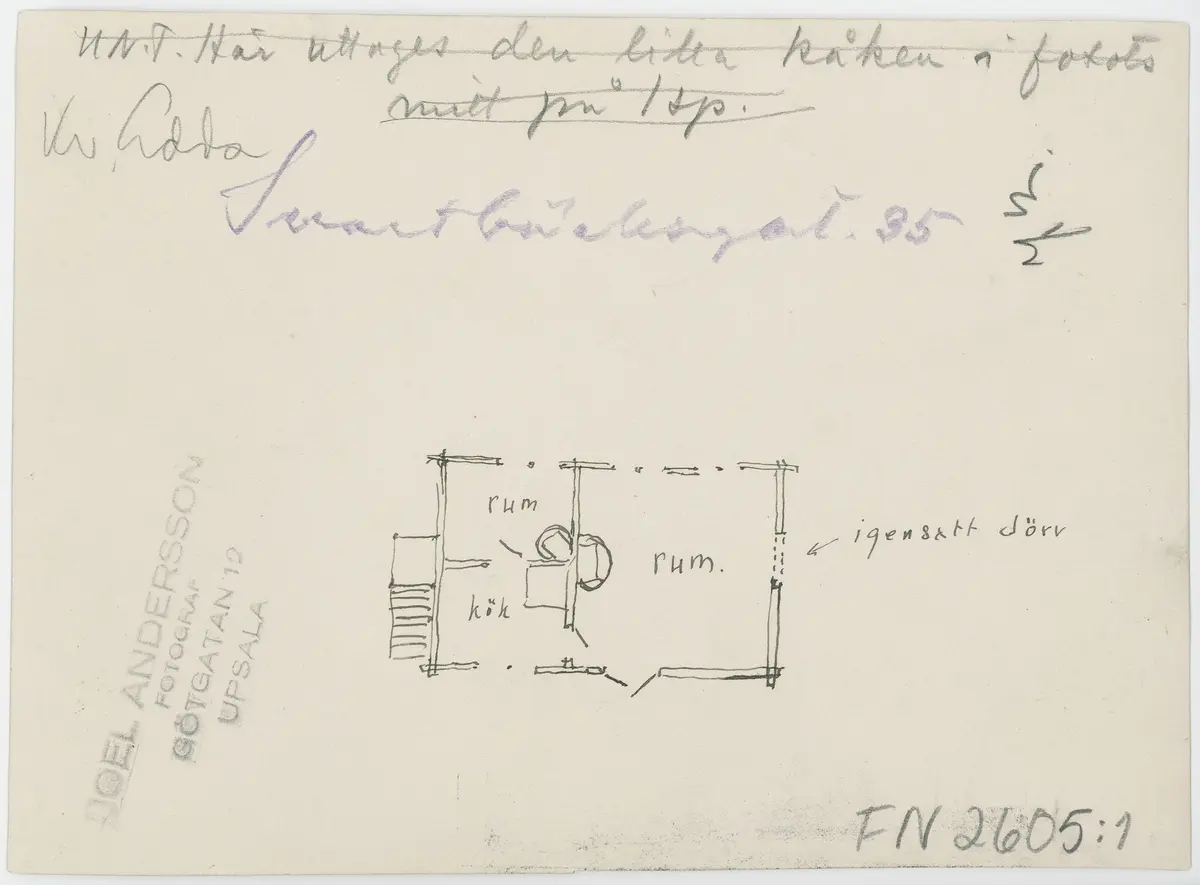 UNT. Här uttages den lilla kåken i fotots
mitt på 1 sp.
Kv. Edda
Svartbäcksgat. 35
rum
rum.
kök
igensatt dörr
JOEL ANDERSSON
FOTOGRAF
GÖTGATAN 12
UPSALA
FN 2605:1